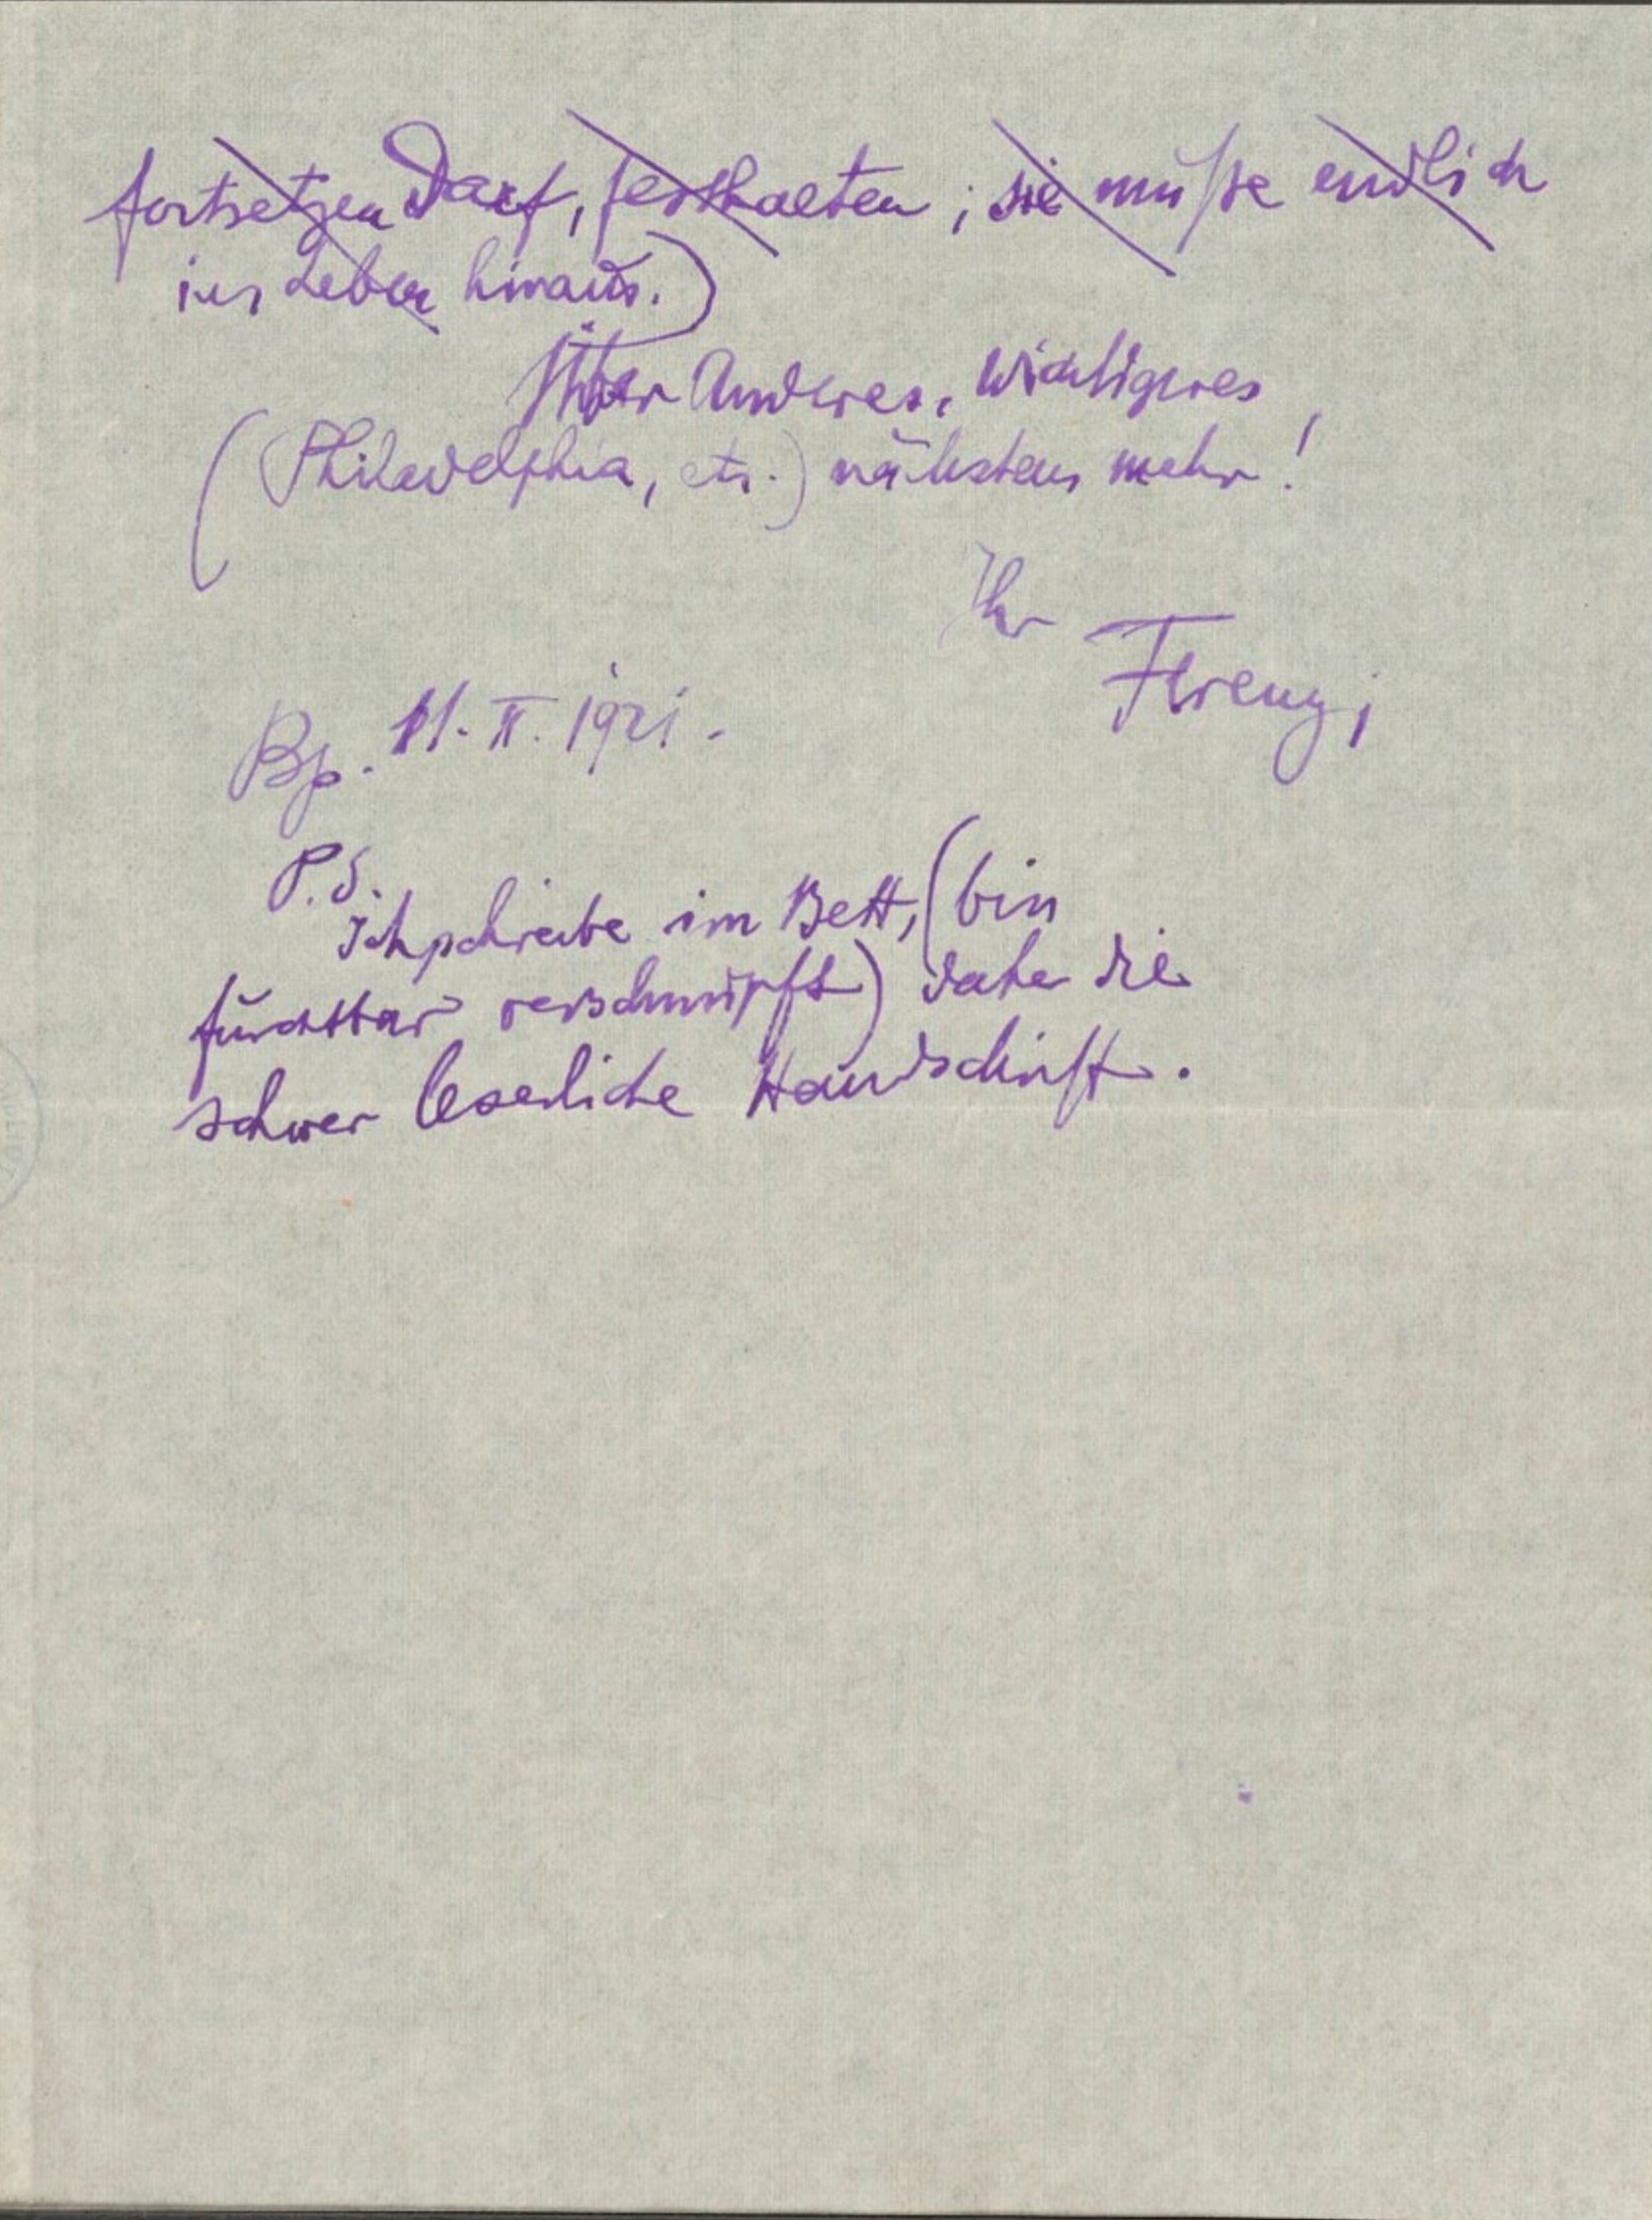 fortsetzen darf, festhalten; sie müsse endlich
ins Leben hinaus.)
Über Anderes, Wichtigeres
(Philadelphia, etc.) nächstens mehr!
Ihr
Ferenczi
Bp. 11. II. 1921.
P.S.
Ich schreibe im Bett, (bin
furchtbar verschnupft) daher die
schwer leserliche Handschrift.